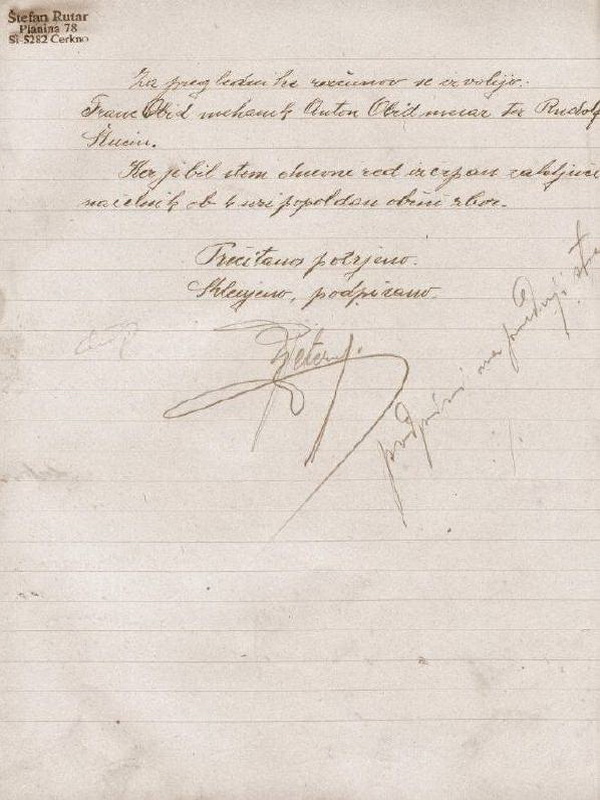 Štefan Rutar
Planina 78
SI-5282 Cerkno
Za preglednike računov se izvolijo:
Franc Obid mehanik Anton Obid mesar ter Rudolf
Štucin.
Ker je bil stem dnevni red izčrpan zaključi
načelnik ob 4 uri popoldan občni zbor.
Prečitano potrjeno.
Sklenjeno, podpisano.
Peter
podpisi na